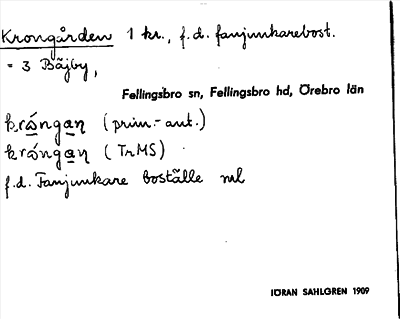 Krongården 1 kr., f.d. fanjunkarebost.
= 3 Bäjby,
Fellingsbro sn, Fellingsbro hd, Örebro län
krángan (prim.-ant.)
krángan (TrMS)
f.d. Fanjunkare boställe
JÖRAN SAHLGREN 1909